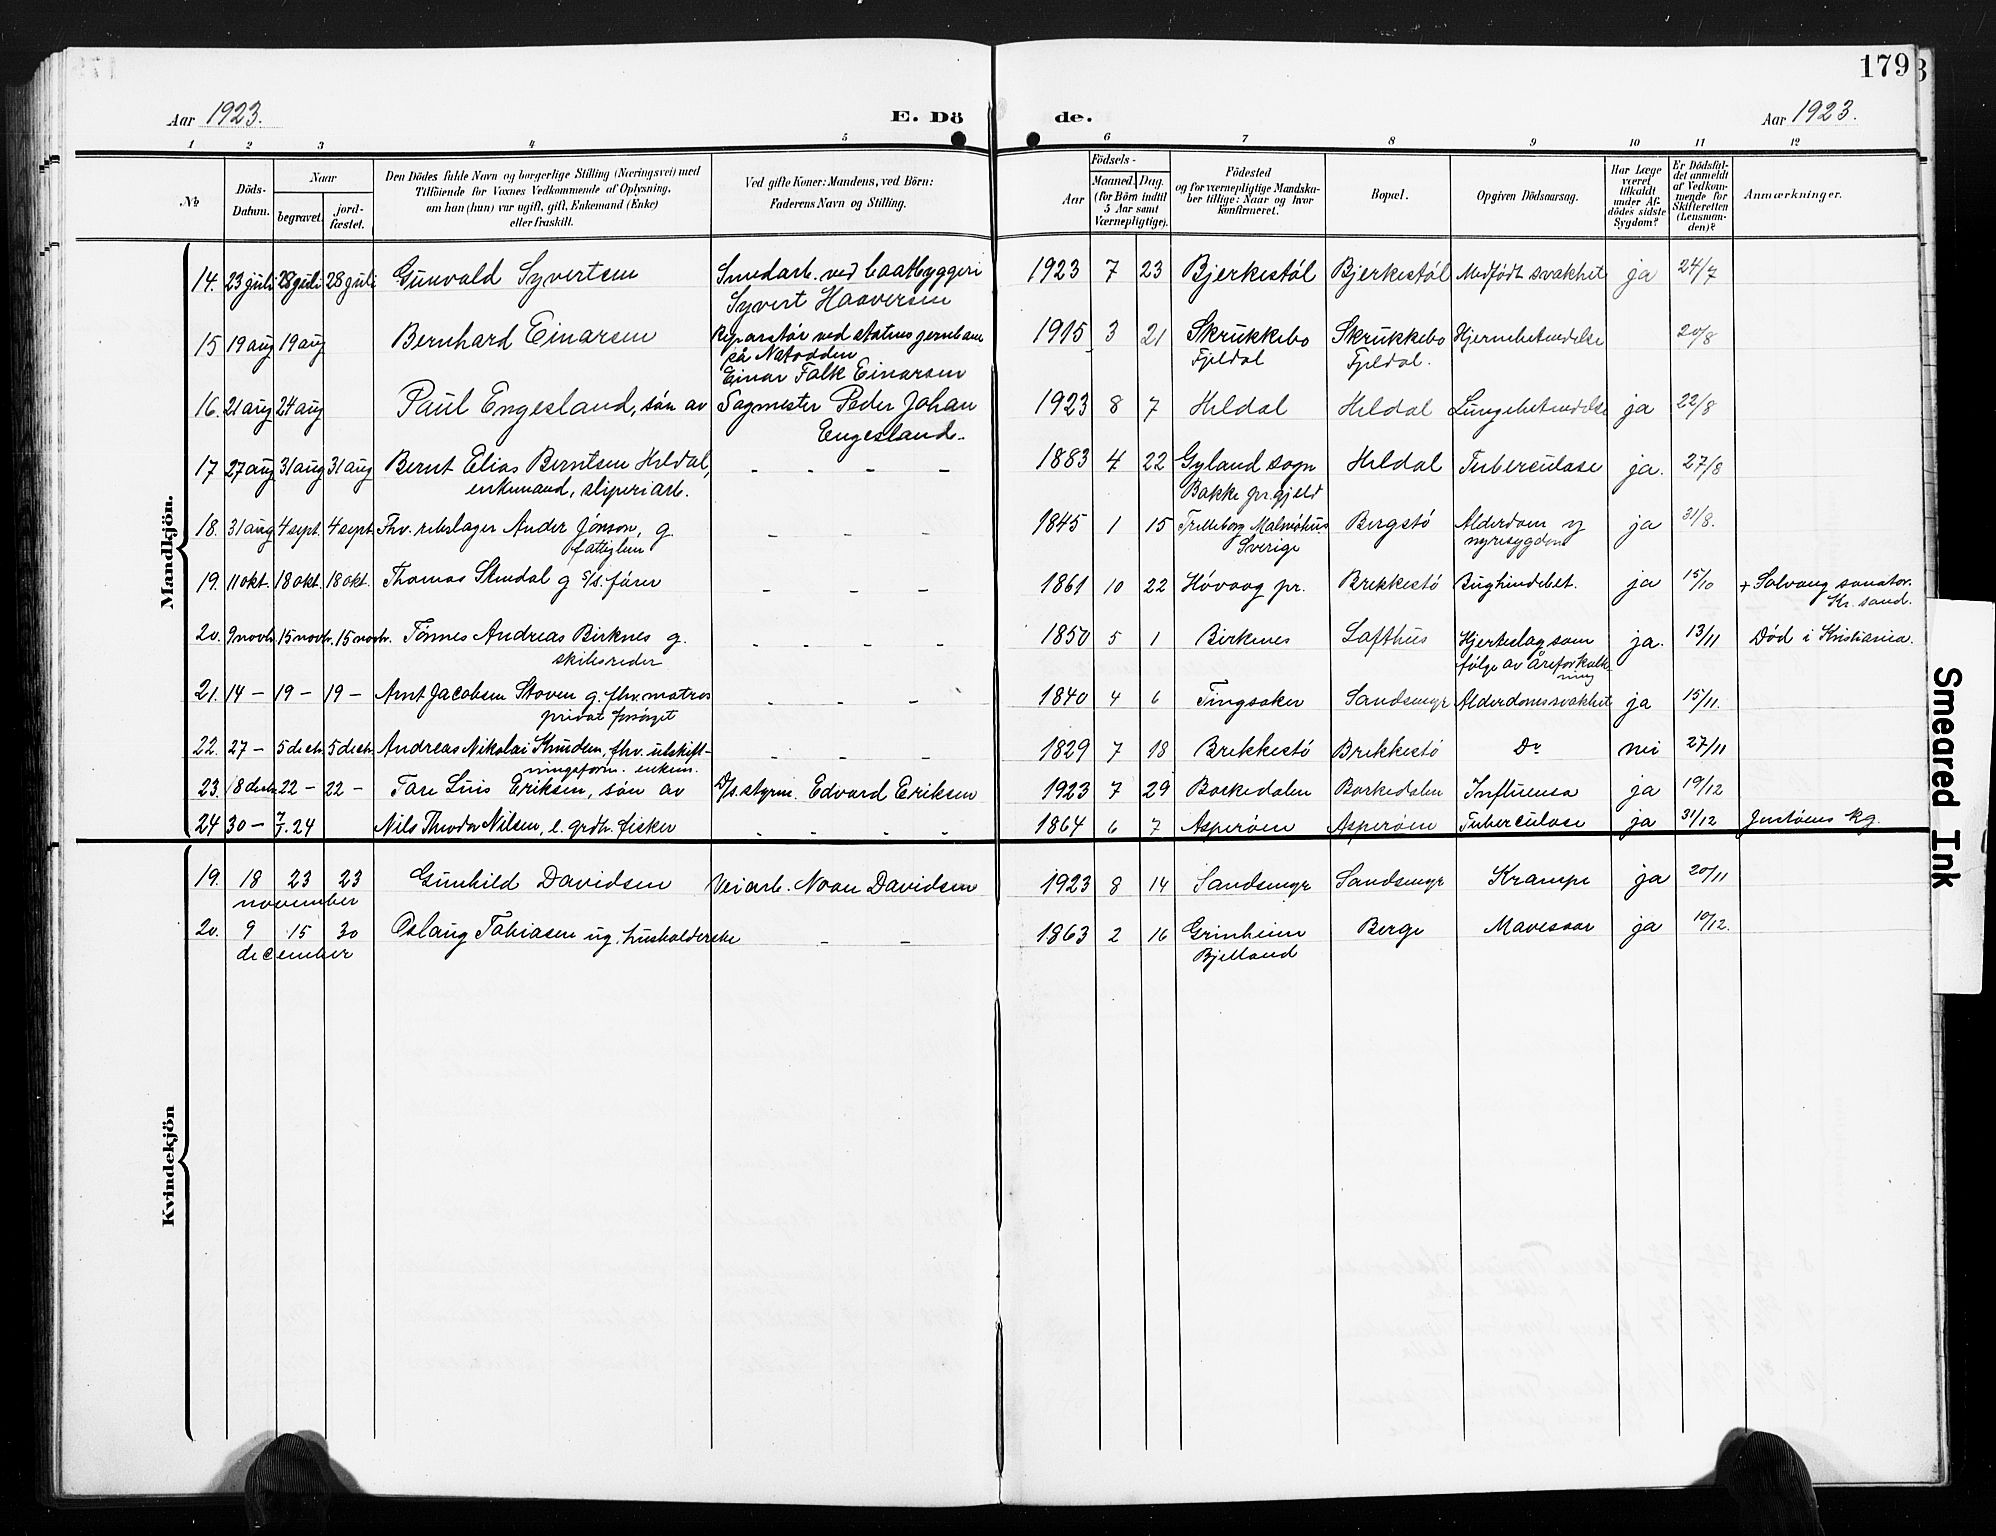 179
Aar 1923. E. Dö de. Aar 1923.
1 2 3 4 5 6 7 8 9 10 11 12
No
Döds-Datum.
Naar
begravet.
jord-fæstet.
Den Dödes fulde Navn og borgerlige Stilling (Næringsvei) med
Tilföiende for Voxnes Vedkommende af Oplysning,
om han (hun) var ugift, gift, Enkemand (Enke)
eller fraskilt.
Ved gifte Koner: Mandens, ved Börn:
Faderens Navn og Stilling.
Födsels-
Aar
Maaned. Dag.
(for Börn indtil
5 Aar samt
Værnepligtige).
Födested
og for værnepligtige Mandska-
ber tillige: Naar og hvor
konfirmeret.
Bopæl.
Opgiven Dödsaarsag.
Har Læge
været
tilkaldt
under Af-
dödes sidste
Sygdom?
Er Dödsfal-
det anmeldt
af Vedkom-
mende for
Skifteretten
(Lensman-
den)?
Anmærkninger.
Mandkjön.
14. 23 juli 28 juli 28 juli Gunvald Syvertsen Smedarb. ved baatbyggeri 1923 7 23 Bjerkestøl Bjerkestøl Medfødt svakhet ja 24/7
Syvert Haaversen
15 19 aug 19 aug Bernhard Einarsen Reparatør ved statens jernbane 1915 3 21 Skrukkebo Skrukkebo Hjernebetændelse 20/8
på Notodden Fjeldal Fjeldal.
Einar Falk Einarsen
16. 21 aug 24 aug Paul Engesland, søn av Sagmester Peder Johan 1923 8 7 Heldal Heldal Lungebetændelse ja 22/8
Engesland.
17 27 aug 31 aug 31 aug Bernt Elias Berntsen Heldal, - - - - 1883 4 22 Gyland sogn Heldal Tuberculose ja. 27/8
enkemand, sliperiarb. Bakke pr.gjeld
18. 31 aug 4 sept. 4 sept. Fhv. rebslager Ander Jönson, g. - - - 1845 1 15 Trelleborg Malmöhus Bergstø Alderdom og ja 31/8.
fattiglem Sverige nyresygdom
19. 11 okt. 18 okt. 18 okt. Thomas Stendal g s/s. fører - - - 1861 10 22 Høvaag pr. Brekkestø Bughindebet. ja 15/10 + Solvang sanator.
Kr. sand.
20. 9 novb. 15 novb. 15 novb. Tønnes Andreas Birknes g. - - - - 1850 5 1 Birkenes Lofthus Hjerteslag som ja. 13/11 Død i Kristiania.
skibsreder følge av åreforkalk-
ning
21. 14 - 19 - 19 - Arnt Jacobsen Stoveen g. fhv. matros - - - 1840 4 6 Tingsaker Sandsmyr Alderdomssvakhet ja 15/11.
privat forsørget
22. 27 - 5 decb. 5 decb. Andreas Nikolai Knudsen, fhv. utskift- - - - 1829 7 18 Brekkestø Brekkestø Do nei 27/11
ningsform. enkem.
23. 18 decb. 22 - 22 - Tore Luis Eriksen, søn av D/s. styrm. Edvard Eriksen 1923 7 29 Borkedalen Borkedalen Influensa ja 19/12
24 30 - 7/1.24 Nils Theodor Nilsen, e. grdb. fisker - - - - 1864 6 7 Asperøen Asperøen Tuberculose ja 31/12 Justøens kg.
Kvindekjön
19. 18 23 23 Gunhild Davidsen Veiarb. Noan Davidsen 1923 8 14 Sandsmyr Sandsmyr Krampe ja 20/11
november
20. 9 15 30 Oslaug Tobiasen ug. husholderske - - 1863 2 16 Grinheim Berge Mavesaar ja 10/12.
december Bjelland
Smeared Ink